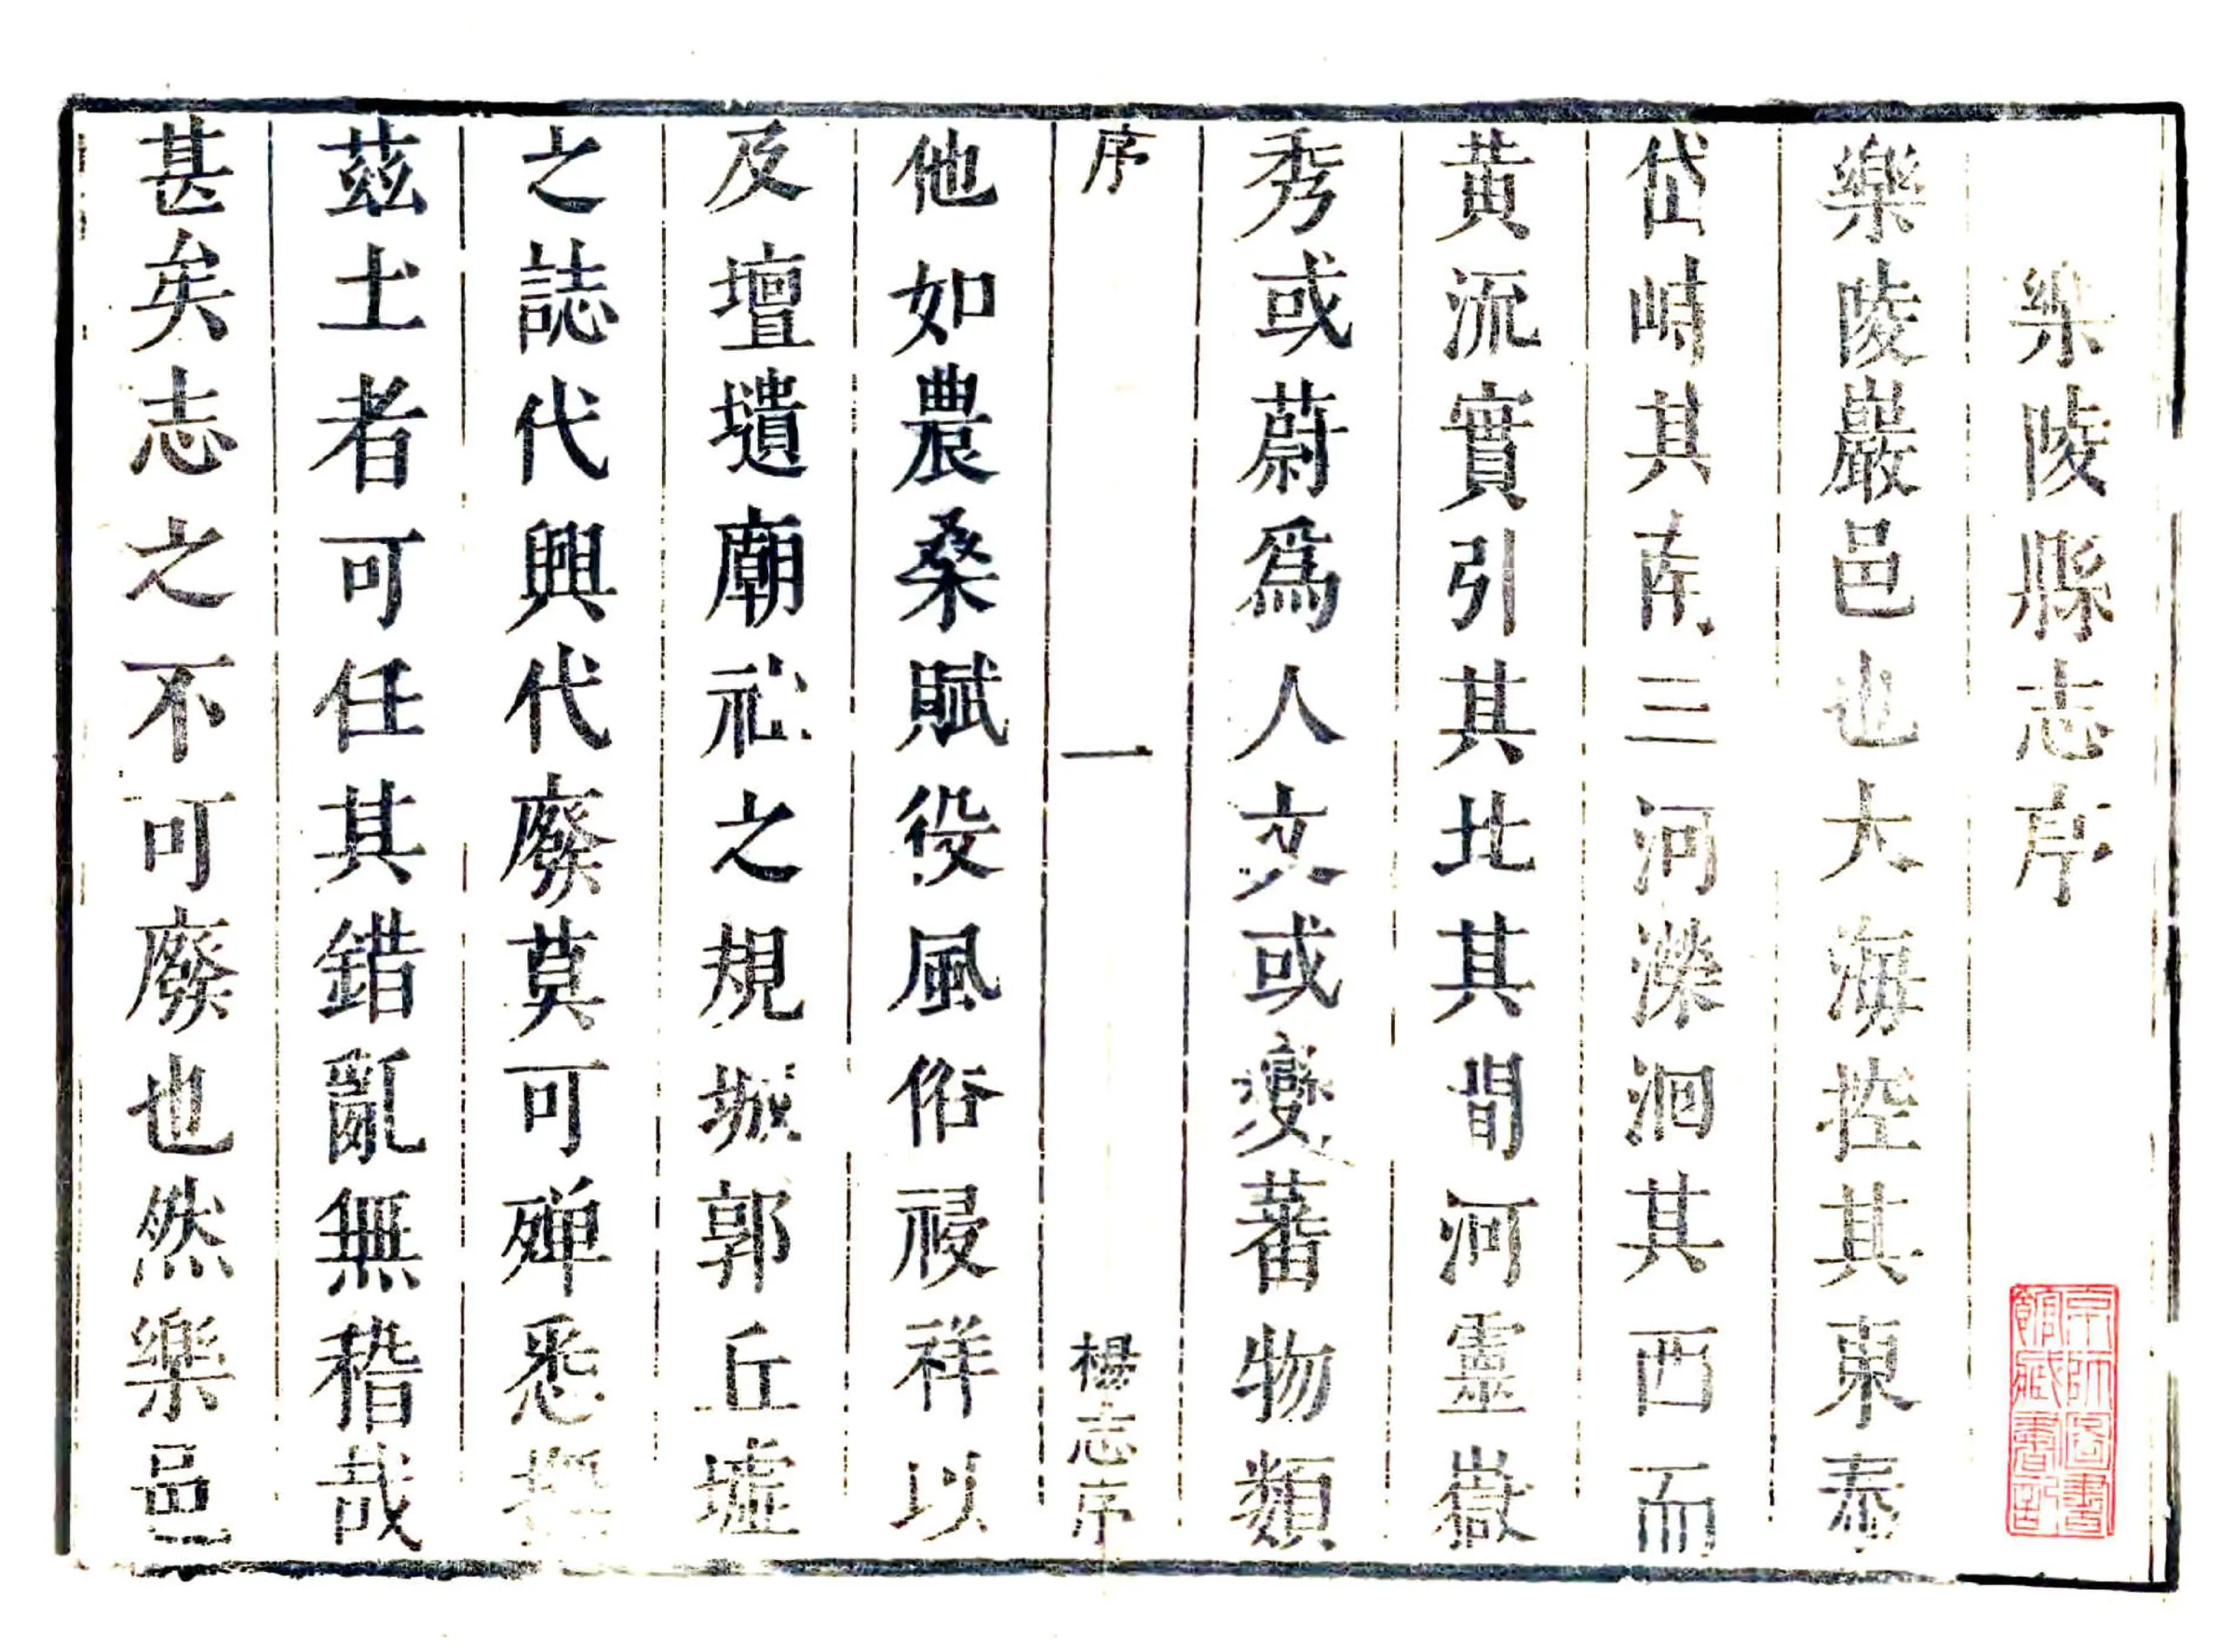 樂陵縣志序
樂陵巖邑也大海控其東泰
岱峙其南三河濼洄其西而
黃流實引其北其間河靈嶽
秀或蔚爲人文或變蕃物類
序
一
楊志序
他如農桑賦役風俗祲祥以
及壇壝廟祀之規城郭丘墟
之誌代興代廢莫可殫悉
茲土者可任其錯亂無稽哉
甚矣志之不可廢也然樂邑
京師圖書
館藏書記